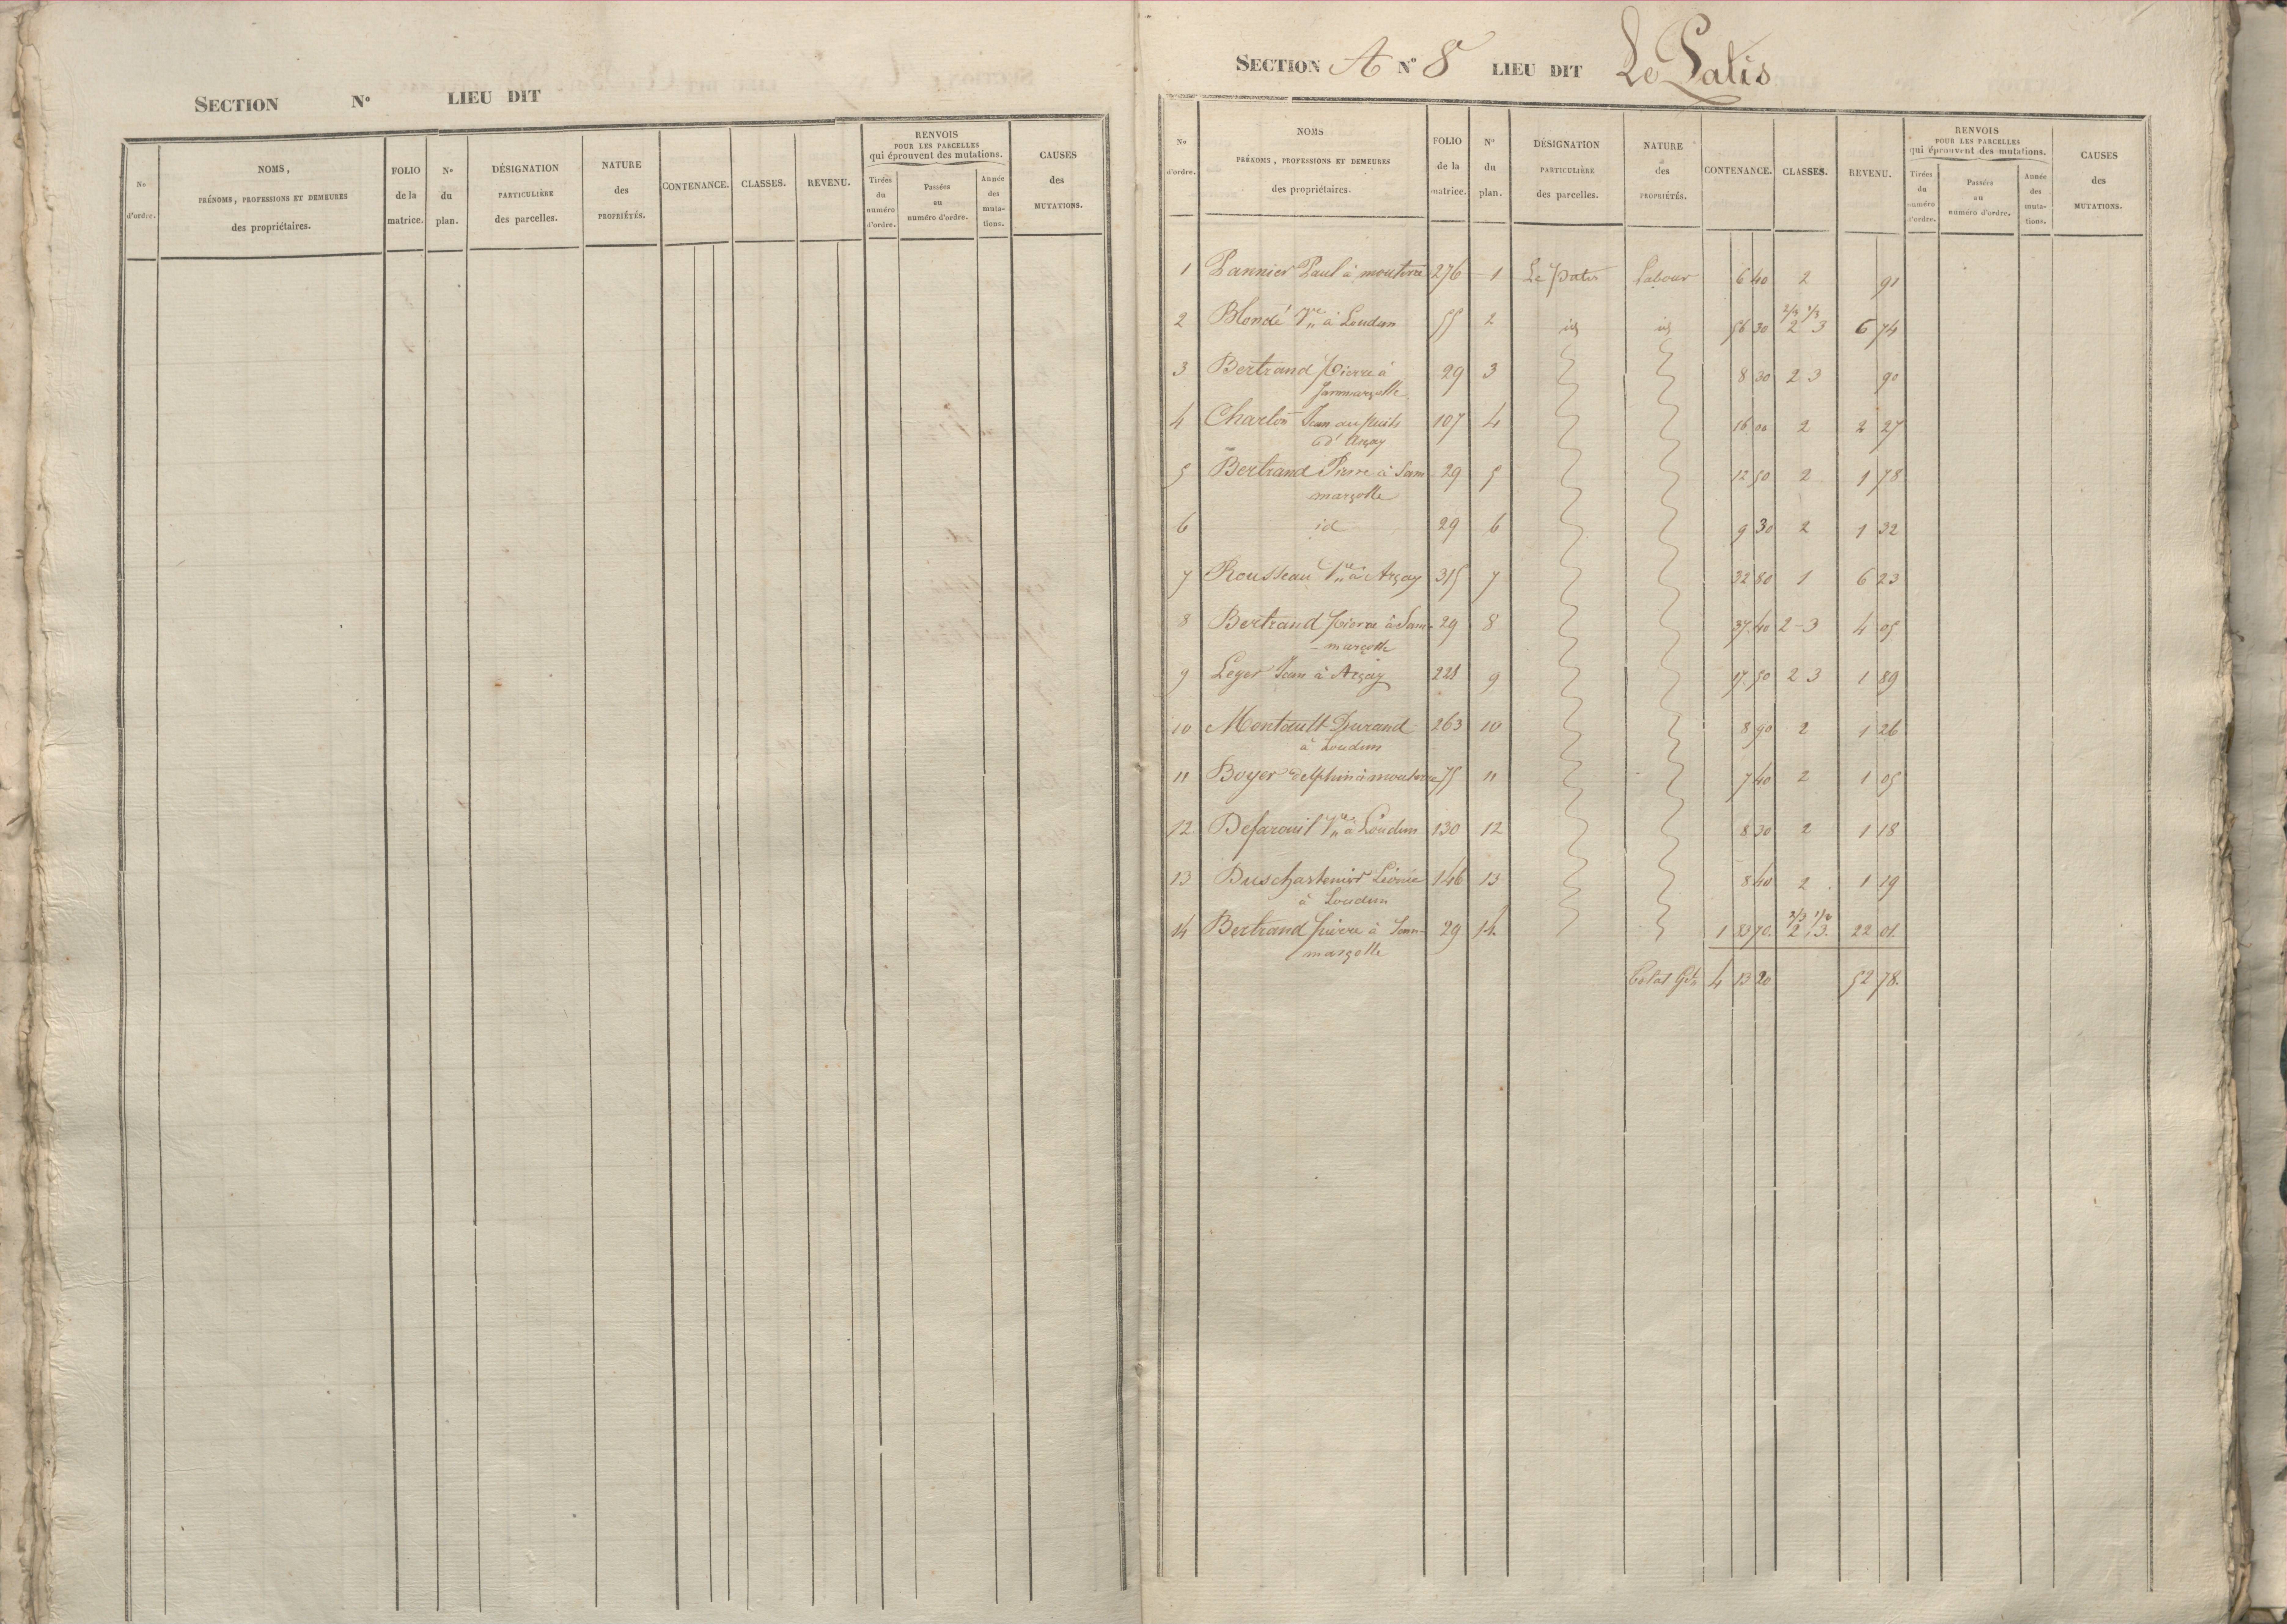 SECTION N° LIEU DIT
N° d'ordre. NOMS, PRÉNOMS, PROFESSIONS ET DEMEURES des propriétaires. FOLIO de la matrice. N° du plan. DÉSIGNATION PARTICULIÈRE des parcelles. NATURE des PROPRIÉTÉS. CONTENANCE. CLASSES. REVENU. RENVOIS POUR LES PARCELLES qui éprouvent des mutations. Tirées du numéro d'ordre. Passées au numéro d'ordre. Année des mutations. CAUSES des MUTATIONS.
SECTION A N° 8 LIEU DIT Le Patis
N° d'ordre. NOMS PRÉNOMS, PROFESSIONS ET DEMEURES des propriétaires. FOLIO de la matrice. N° du plan. DÉSIGNATION PARTICULIÈRE des parcelles. NATURE des PROPRIÉTÉS. CONTENANCE. CLASSES. REVENU. RENVOIS POUR LES PARCELLES qui éprouvent des mutations. Tirées du numéro d'ordre. Passées au numéro d'ordre. Année des mutations. CAUSES des MUTATIONS.
1 Pannier Paul à mouterre 276 1 Le patis labour 6 40 2 91
2/3 1/3
2 Blondé Vve à Loudun 55 2 id id 56 30 2 3 6 74
3 Bertrand pierre à 29 3 8 30 2 3 90
4 Charlon Jean au puits 107 4 16 00 2 2 27
d'Arçay
5 Bertrand Pierre à Sam 29 5 12 50 2 1 78
marçolle
6 id 29 6 9 30 2 1 32
7 Rousseau Vve à Arçay 315 7 32 80 1 6 23
8 Bertrand pierre à Sam- 29 8 37 40 2-3 4 05
-marçolle
9 Leger Jean à Arçay 228 9 17 50 2 3 1 89
10 Montault-Durand 263 10 8 90 2 1 26
à Loudun
11 Boyer delphin à mouterre 75 11 7 40 2 1 05
12 Defarouil Vve à Loudun 130 12 8 30 2 1 18
13 Duschastenier Léonie 146 13 8 40 2 1 19
à Loudun
14 Bertrand pierre à Sam- 29 14 1 83 70 2 3 22 01
marçolle
Total Gal 4 13 20 52 78